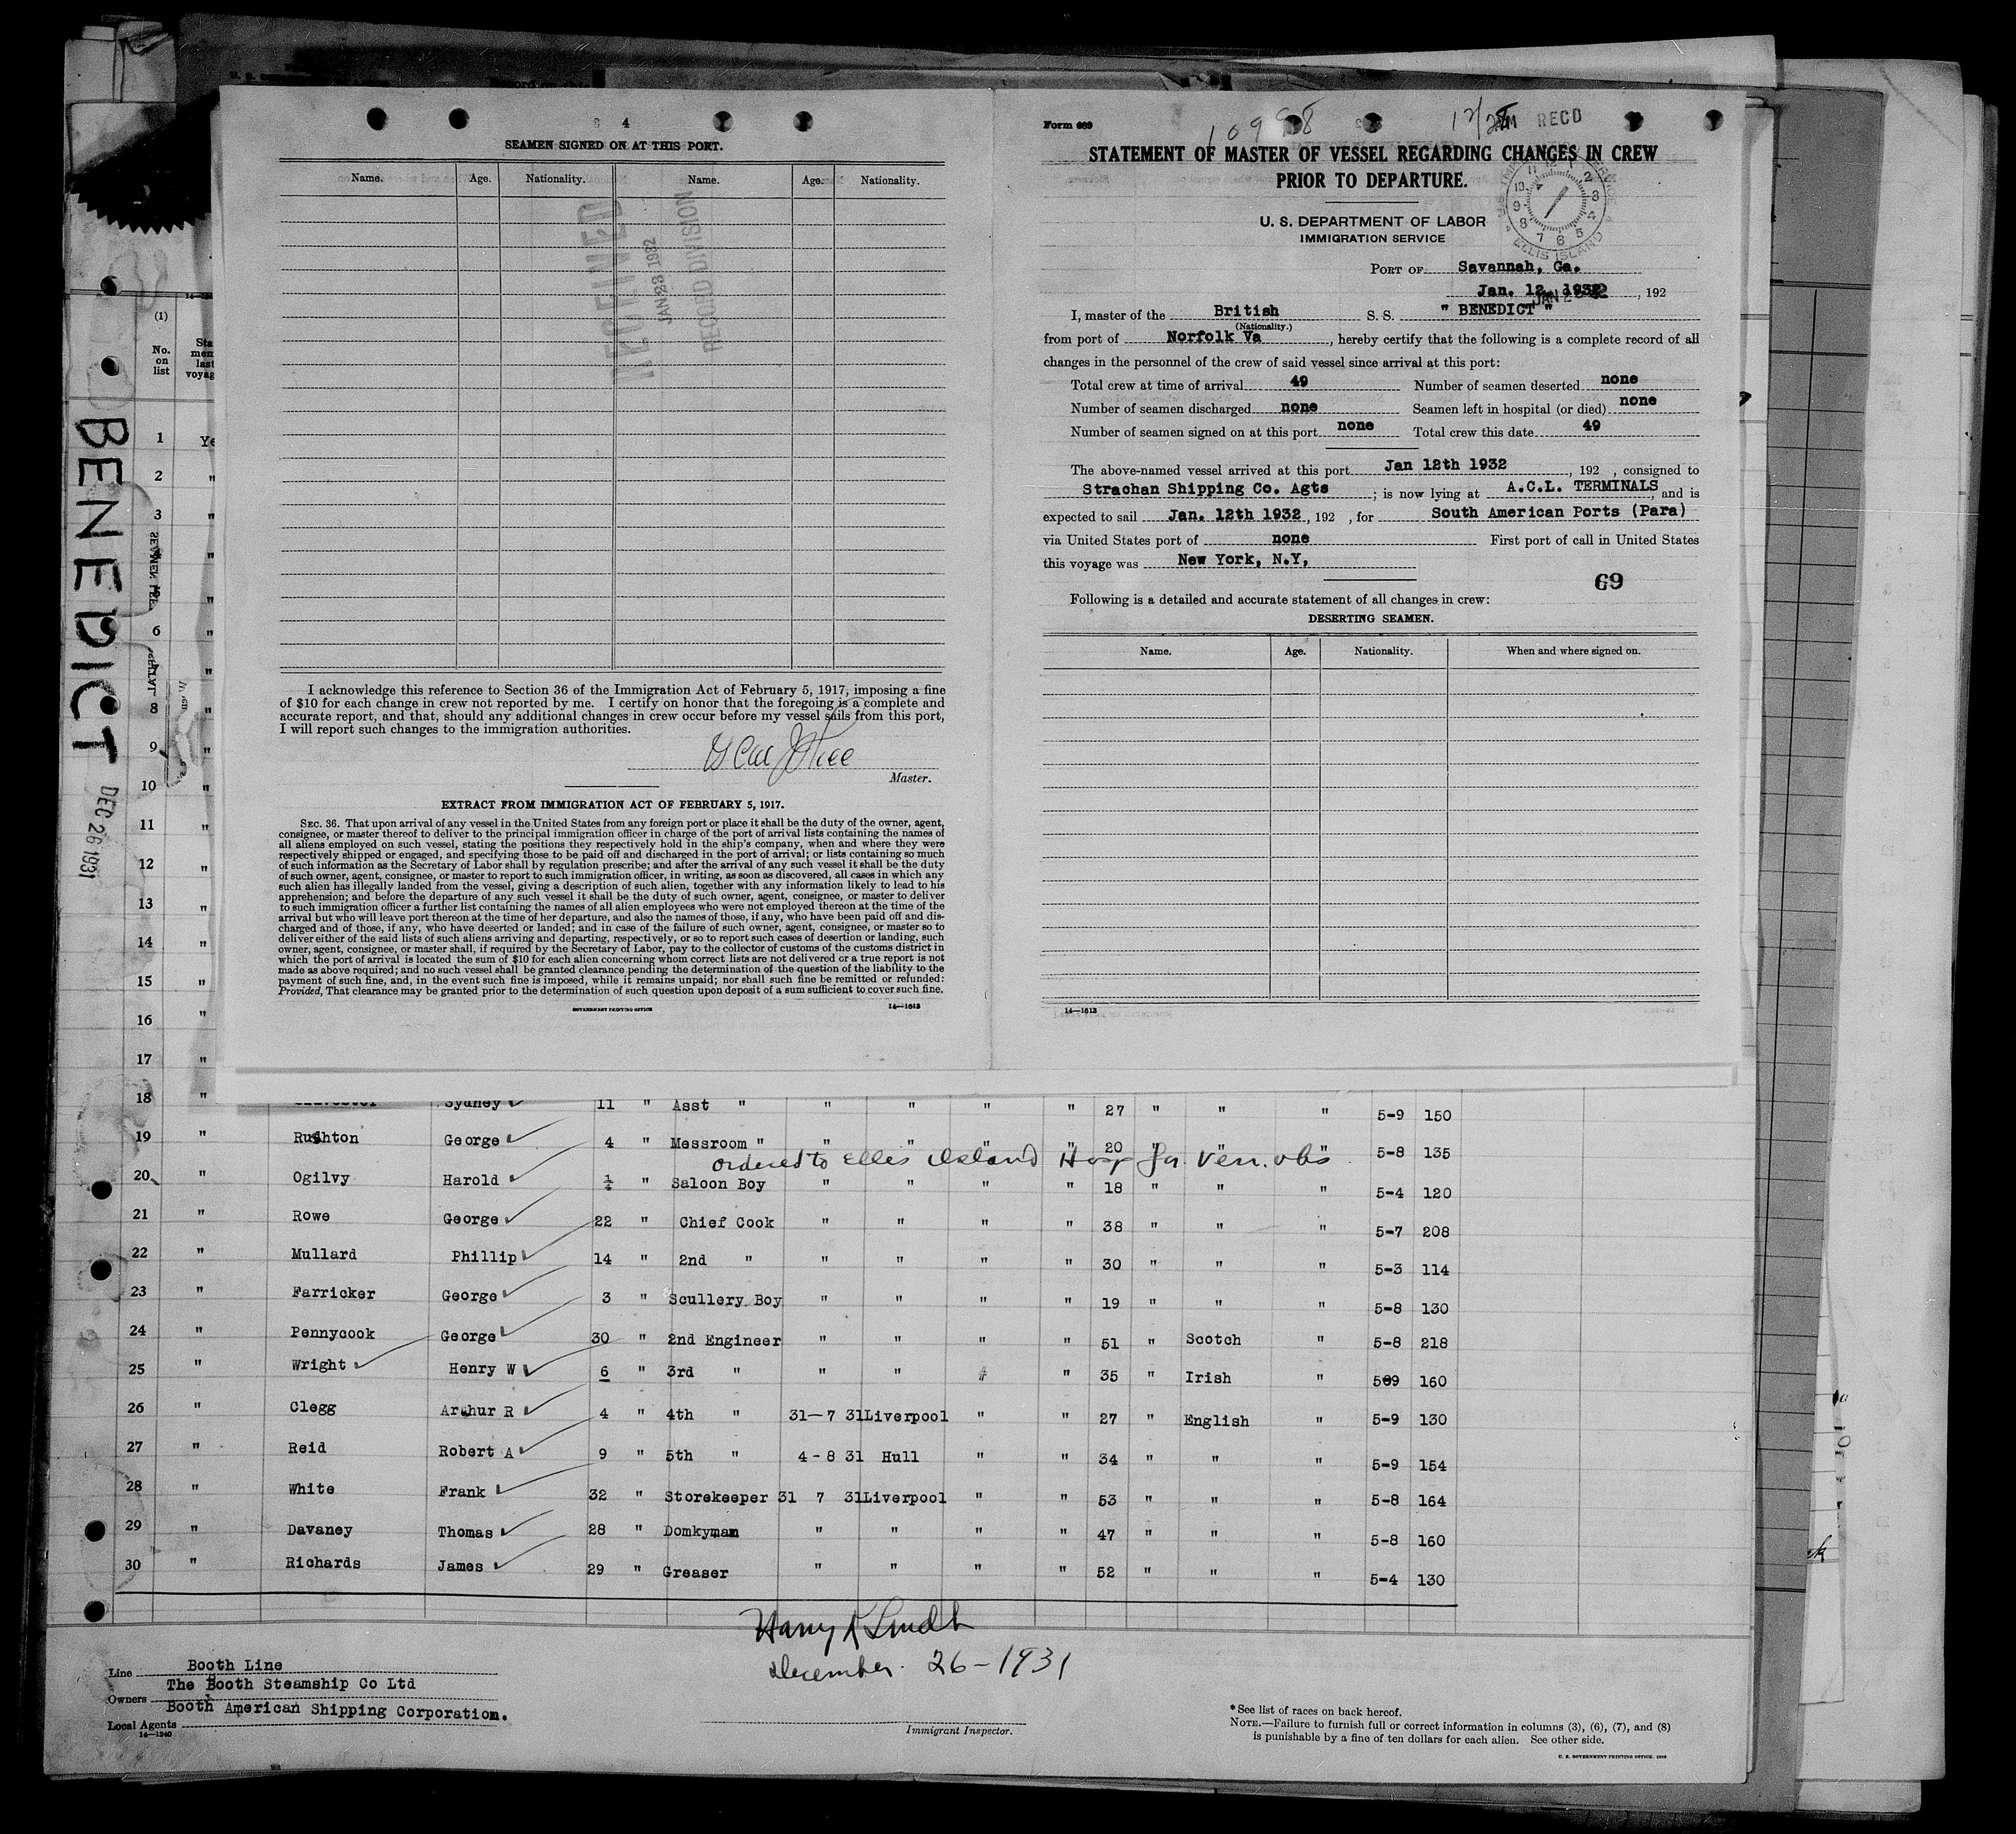 4
SEAMEN SIGNED ON AT THIS PORT.
Name. Age. Nationality. Name. Age. Nationality.
RECEIVED
JAN 23 1932
RECORD DIVISION
I acknowledge this reference to Section 36 of the Immigration Act of February 5, 1917, imposing a fine
of $10 for each change in crew not reported by me. I certify on honor that the foregoing is a complete and
accurate report, and that, should any additional changes in crew occur before my vessel sails from this port,
I will report such changes to the immigration authorities.
Master.
EXTRACT FROM IMMIGRATION ACT OF FEBRUARY 5, 1917.
SEC. 36. That upon arrival of any vessel in the United States from any foreign port or place it shall be the duty of the owner, agent,
consignee, or master thereof to deliver to the principal immigration officer in charge of the port of arrival lists containing the names of
all aliens employed on such vessel, stating the positions they respectively hold in the ship's company, when and where they were
respectively shipped or engaged, and specifying those to be paid off and discharged in the port of arrival; or lists containing so much
of such information as the Secretary of Labor shall by regulation prescribe; and after the arrival of any such vessel it shall be the duty
of such owner, agent, consignee, or master to report to such immigration officer, in writing, as soon as discovered, all cases in which any
such alien has illegally landed from the vessel, giving a description of such alien, together with any information likely to lead to his
apprehension; and before the departure of any such vessel it shall be the duty of such owner, agent, consignee, or master to deliver
to such immigration officer a further list containing the names of all alien employees who were not employed thereon at the time of the
arrival but who will leave port thereon at the time of her departure, and also the names of those, if any, who have been paid off and dis-
charged and of those, if any, who have deserted or landed; and in case of the failure of such owner, agent, consignee, or master so to
deliver either of the said lists of such aliens arriving and departing, respectively, or so to report such cases of desertion or landing, such
owner, agent, consignee, or master shall, if required by the Secretary of Labor, pay to the collector of customs of the customs district in
which the port of arrival is located the sum of $10 for each alien concerning whom correct lists are not delivered or a true report is not
made as above required; and no such vessel shall be granted clearance pending the determination of the question of the liability to the
payment of such fine, and, in the event such fine is imposed, while it remains unpaid; nor shall such fine be remitted or refunded:
Provided, That clearance may be granted prior to the determination of such question upon deposit of a sum sufficient to cover such fine.
GOVERNMENT PRINTING OFFICE 14—1613
Form 689
RECD
STATEMENT OF MASTER OF VESSEL REGARDING CHANGES IN CREW
PRIOR TO DEPARTURE.
U. S. DEPARTMENT OF LABOR
IMMIGRATION SERVICE
ELLIS ISLAND
PORT OF Savannah, Ga.
Jan. 12, 1932, 192
I, master of the British S. S. " BENEDICT "
(Nationality.)
from port of Norfolk Va, hereby certify that the following is a complete record of all
changes in the personnel of the crew of said vessel since arrival at this port:
Total crew at time of arrival 49 Number of seamen deserted none
Number of seamen discharged none Seamen left in hospital (or died) none
Number of seamen signed on at this port none Total crew this date 49
The above-named vessel arrived at this port Jan 12th 1932, 192 , consigned to
Strachan Shipping Co. Agts; is now lying at A.C.L. TERMINALS, and is
expected to sail Jan. 12th 1932, 192 , for South American Ports (Para)
via United States port of none First port of call in United States
this voyage was New York, N.Y,
69
Following is a detailed and accurate statement of all changes in crew:
DESERTING SEAMEN.
Name. Age. Nationality. When and where signed on.
14—1613
BENEDICT
DEC 26 1931
(1)
No.
on
list
1
2 "
3 "
6 "
8 "
9 "
10 "
11 "
12 "
13 "
14 "
15 "
16 "
17 "
18 " Sydney 11 " Asst " " " " " 27 " " " 5-9 150
19 " Rushton George 4 " Messroom " " " " " 20 " " " 5-8 135
ordered to Ellis Island Hosp for Ven. obs
20 " Ogilvy Harold ¼ " Saloon Boy " " " " 18 " " " 5-4 120
21 " Rowe George 22 " Chief Cook " " " " 38 " " " 5-7 208
22 " Mullard Phillip 14 " 2nd " " " " " 30 " " " 5-3 114
23 " Farricker George 3 " Scullery Boy " " " " 19 " " " 5-8 130
24 " Pennycook George 30 " 2nd Engineer " " " " 51 " Scotch " 5-8 218
25 " Wright Henry W 6 " 3rd " " " " " 35 " Irish " 509 160
26 " Clegg Arthur R 4 " 4th " 31—7 31 Liverpool " " 27 " English " 5-9 130
27 " Reid Robert A 9 " 5th " 4-8 31 Hull " " 34 " " " 5-9 154
28 " White Frank 32 " Storekeeper 31 7 31 Liverpool " " 53 " " " 5-8 164
29 " Davaney Thomas 28 " Domkyman " " " " 47 " " " 5-8 160
30 " Richards James 29 " Greaser " " " " 52 " " " 5-4 130
December 26-1931
Line Booth Line
Owners The Booth Steamship Co Ltd
Local Agents Booth American Shipping Corporation.
14—1240
Immigrant Inspector.
* See list of races on back hereof.
NOTE.—Failure to furnish full or correct information in columns (3), (6), (7), and (8)
is punishable by a fine of ten dollars for each alien. See other side.
U. S. GOVERNMENT PRINTING OFFICE